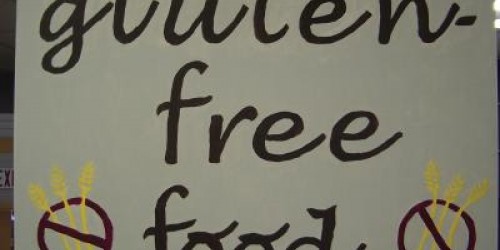 gluten-
free
food
EXI